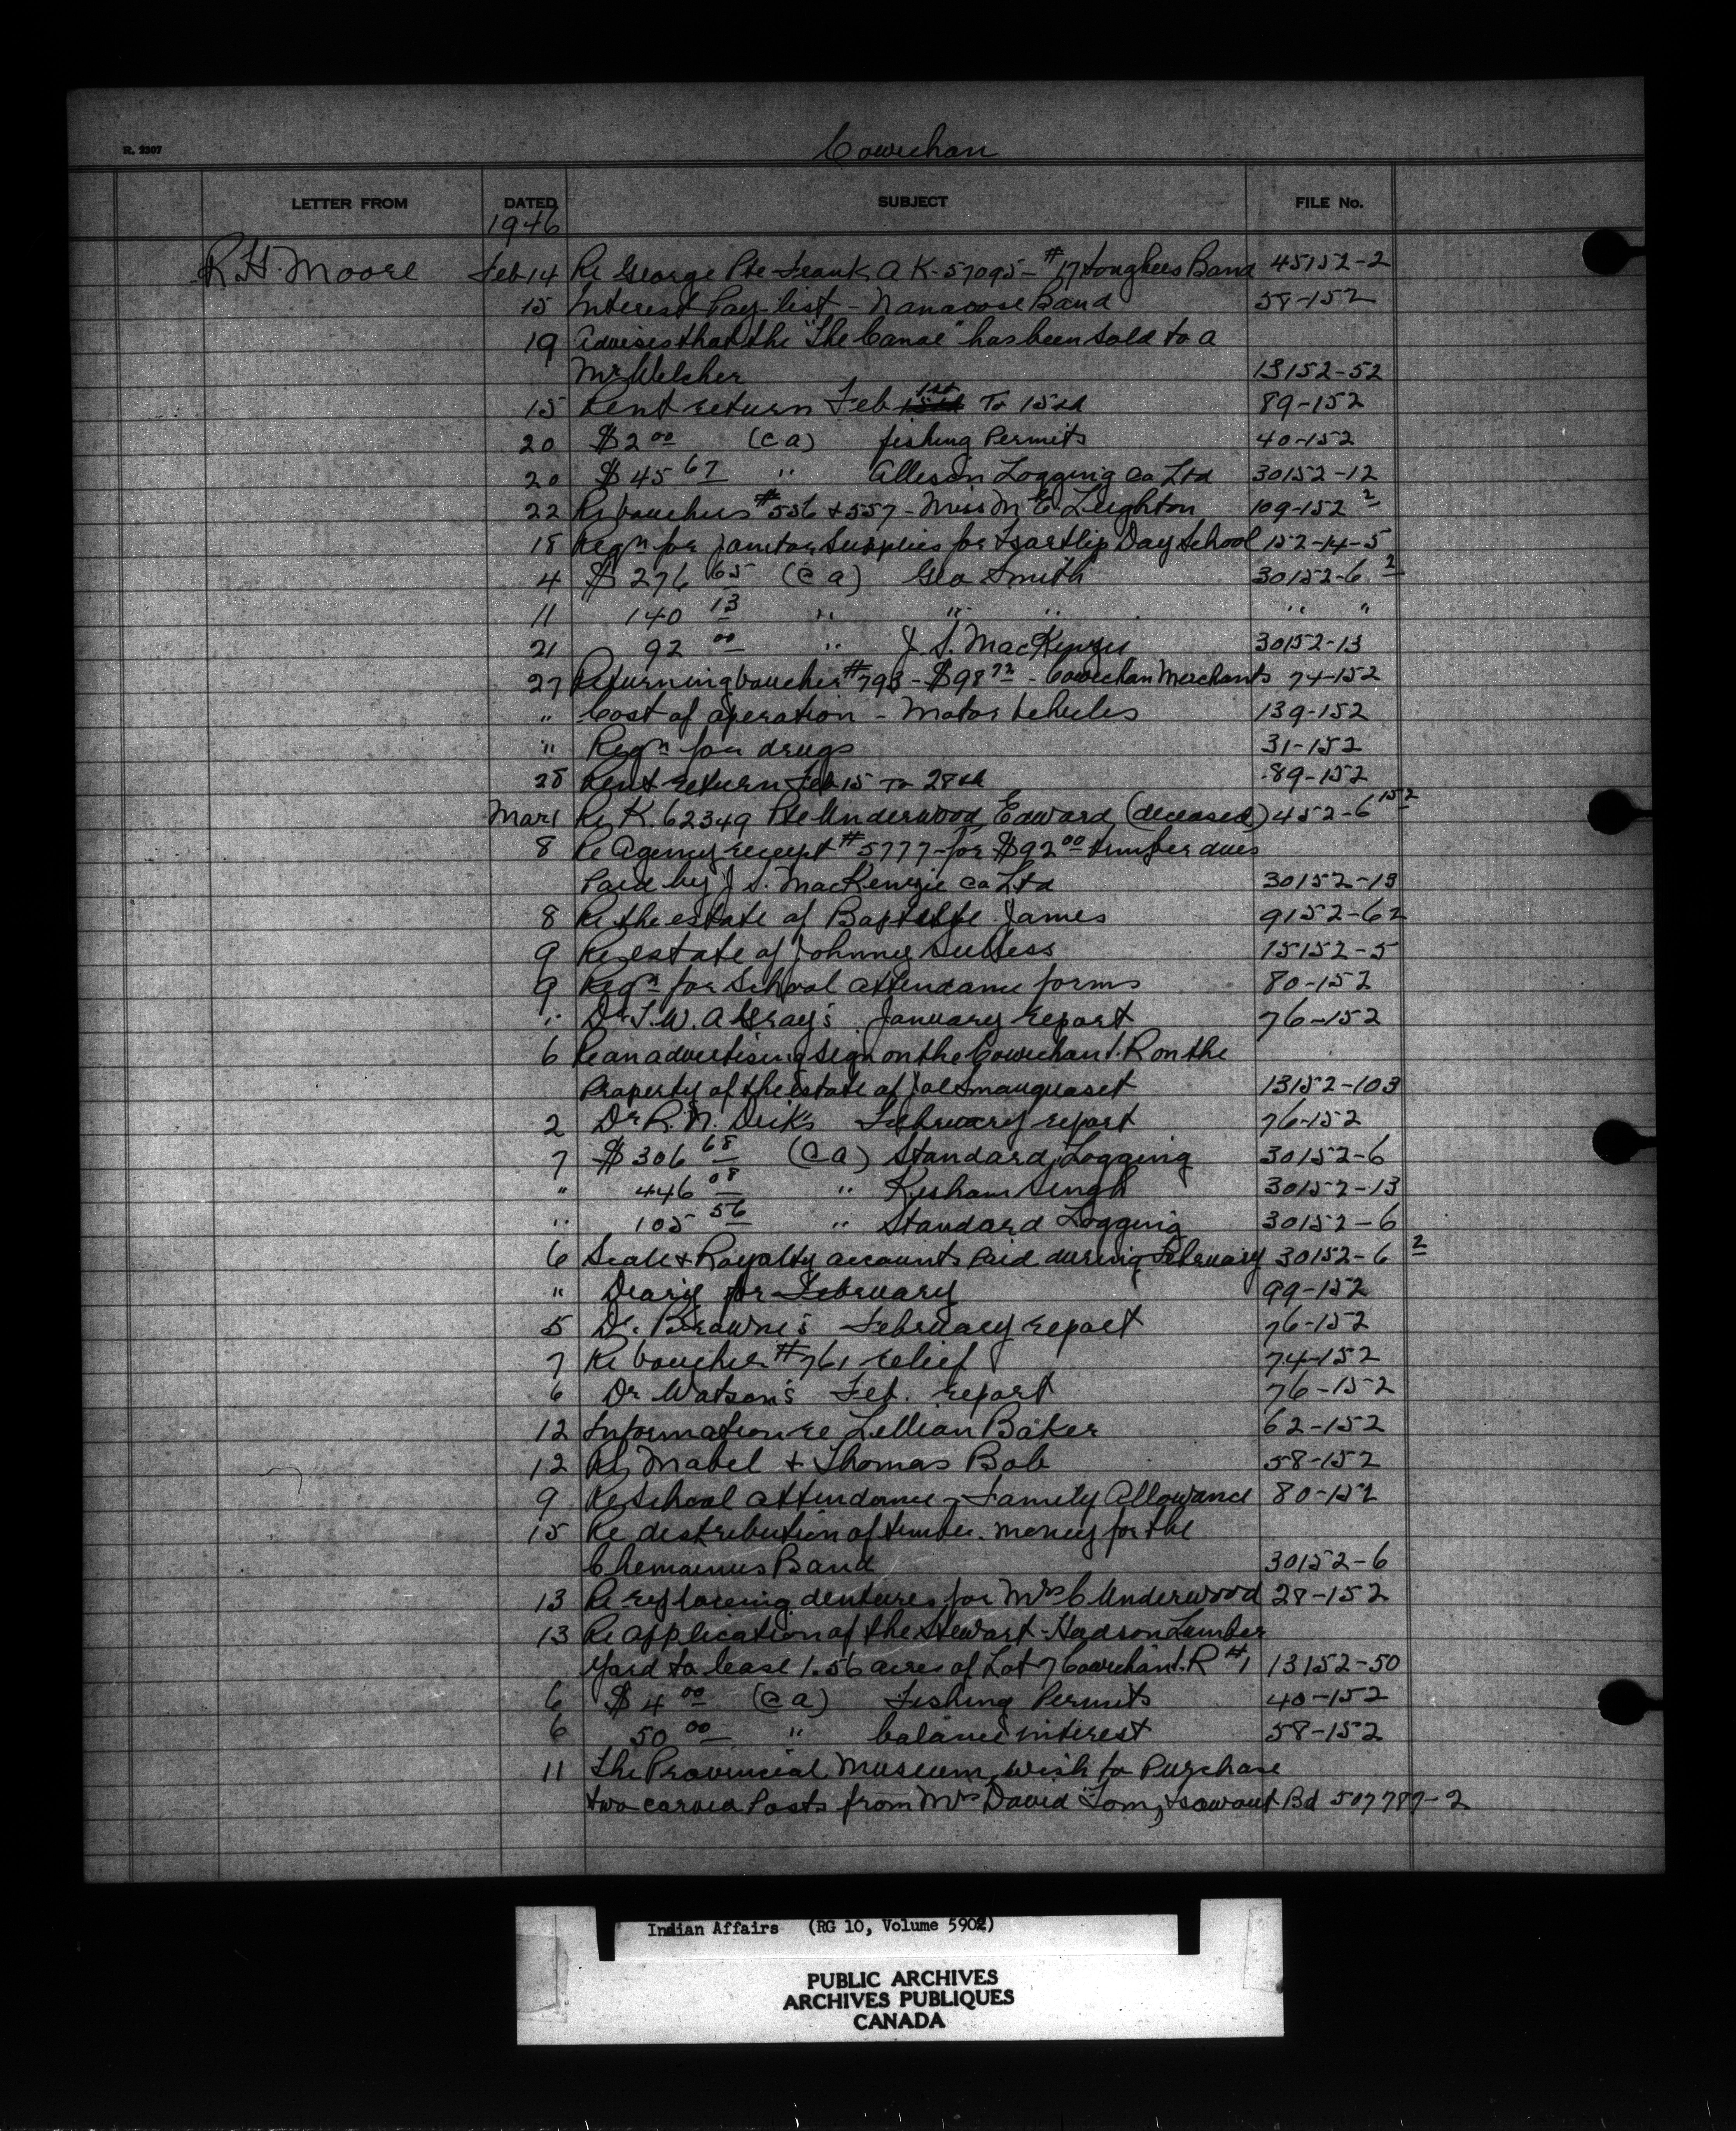 R. 2307
Cowichan
LETTER FROM DATED SUBJECT FILE No.
1946
R.H. Moore Feb 14 Re George Pte Frank A K-57095 - #17 Songhees Band 45152-2
15 Interest Pay-list - Nanaoose Band 58-152
19 Advises that the "The Canoe" has been sold to a
Mr Welcher 13152-52
15 Rent return Feb 1st To 15th 89-152
20 $2 00 (C a) fishing Permits 40-152
20 $45 67 " Allison Logging Co Ltd 30152-12
22 Re vouchers #556 & 557 - Miss M E. Leighton 109-152 2
18 Reqn for Janitor Supplies for Tsartlip Day School 152-14-5
4 $276 65 (C a) Geo Smith 30152-6 2
11 140 13 " " " " "
21 92 00 " J. S. MacKenzie 30152-13
27 Returning voucher #793 - $98 72 - Cowichan Merchants 74-152
" Cost of operation - Motor Vehicles 139-152
" Reqn for drugs 31-152
28 Rent return Feb 15 To 28th 89-152
Mar 1 Re K. 62349 Pte Underwood, Edward (deceased) 452-6 152
8 Re Agency receipt #5777 - for $92 00 timber dues
Paid by J S. MacKenzie Co Ltd 30152-13
8 Re the estate of Baptiste James 9152-62
9 Re estate of Johnny 15152-5
9 Reqn for School attendance forms 80-152
" Dr T.W.A Gray's January report 76-152
6 Re an advertising sign on the Cowichan I.R on the
Property of the estate of Joe 13152-103
2 Dr R.N. Dick's February report 76-152
7 $306 68 (C a) Standard Logging 30152-6
" 446 08 " Kesham Singh 30152-13
" 105 56 " Standard Logging 30152-6
6 Scale & Royalty accounts Paid during February 30152-6 2
" Diary for February 99-152
5 Dr. Browne's February report 76-152
7 Re voucher #761 relief 74-152
6 Dr Watson's Feb. report 76-152
12 Information re Lillian Baker 62-152
12 Re Mabel & Thomas Bob 58-152
9 Re School attendance - Family Allowance 80-152
15 Re distribution of timber money for the
Chemainus Band 30152-6
13 Re replacing dentures for Mrs C Underwood 28-152
13 Re application of the Stewart-Hudson Lumber
Yard to lease 1.56 acres of Lot 7 Cowichan I.R #1 13152-50
6 $4 00 (C a) Fishing Permits 40-152
6 50 00 " balance interest 58-152
11 The Provincial Museum wish to Purchase
two carved Posts from Mrs David Tom, Tsawout Bd 507787-2
Indian Affairs (RG 10, Volume 5902)
PUBLIC ARCHIVES
ARCHIVES PUBLIQUES
CANADA